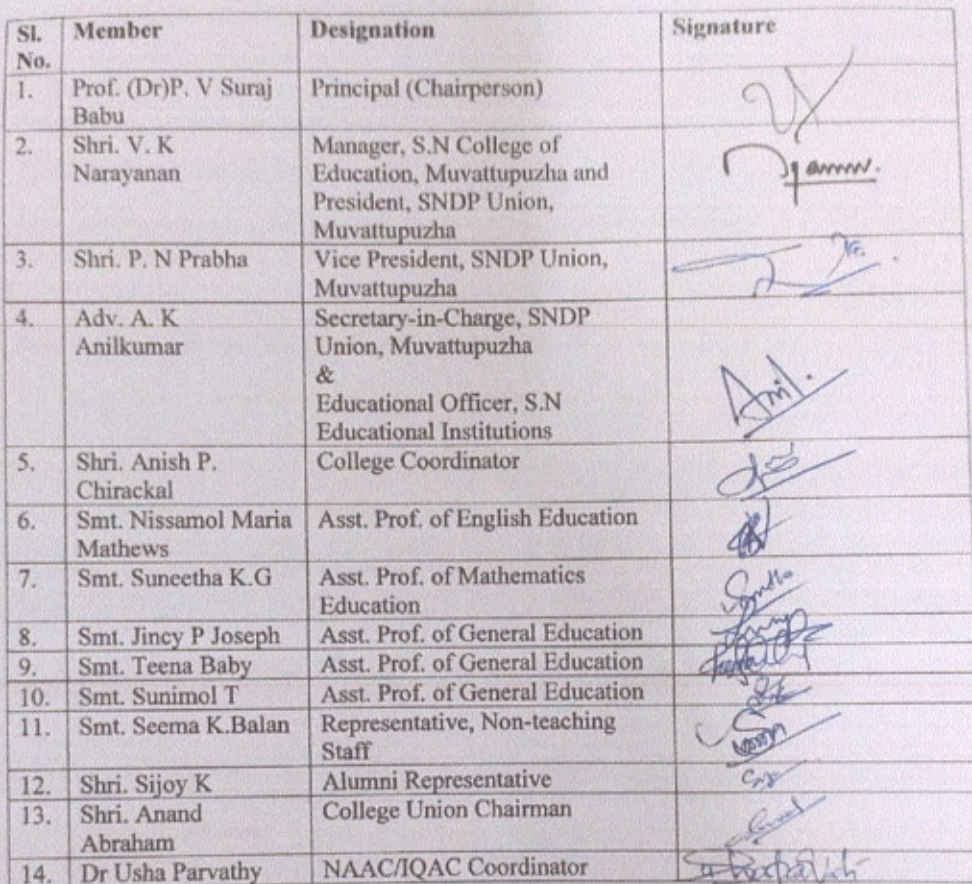 Sl. Member Designation Signature
No.
1. Prof. (Dr)P. V Suraj Principal (Chairperson)
Babu
2. Shri. V. K Manager, S.N College of
Narayanan Education, Muvattupuzha and
President, SNDP Union,
Muvattupuzha
3. Shri. P. N Prabha Vice President, SNDP Union,
Muvattupuzha
4. Adv. A. K Secretary-in-Charge, SNDP
Anilkumar Union, Muvattupuzha
&
Educational Officer, S.N Anil.
Educational Institutions
5. Shri. Anish P. College Coordinator
Chirackal
6. Smt. Nissamol Maria Asst. Prof. of English Education
Mathews
7. Smt. Suneetha K.G Asst. Prof. of Mathematics
Education
8. Smt. Jincy P Joseph Asst. Prof. of General Education
9. Smt. Teena Baby Asst. Prof. of General Education
10. Smt. Sunimol T Asst. Prof. of General Education
11. Smt. Seema K.Balan Representative, Non-teaching
Staff
12. Shri. Sijoy K Alumni Representative
13. Shri. Anand College Union Chairman
Abraham
14. Dr Usha Parvathy NAAC/IQAC Coordinator